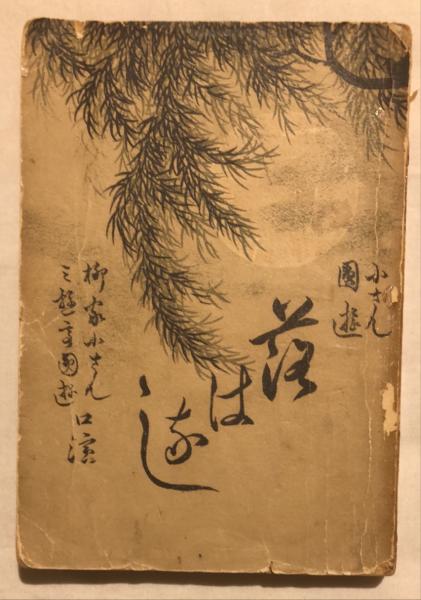 小さん
圓遊
落はなし
柳家小さん
三遊亭圓遊
口演